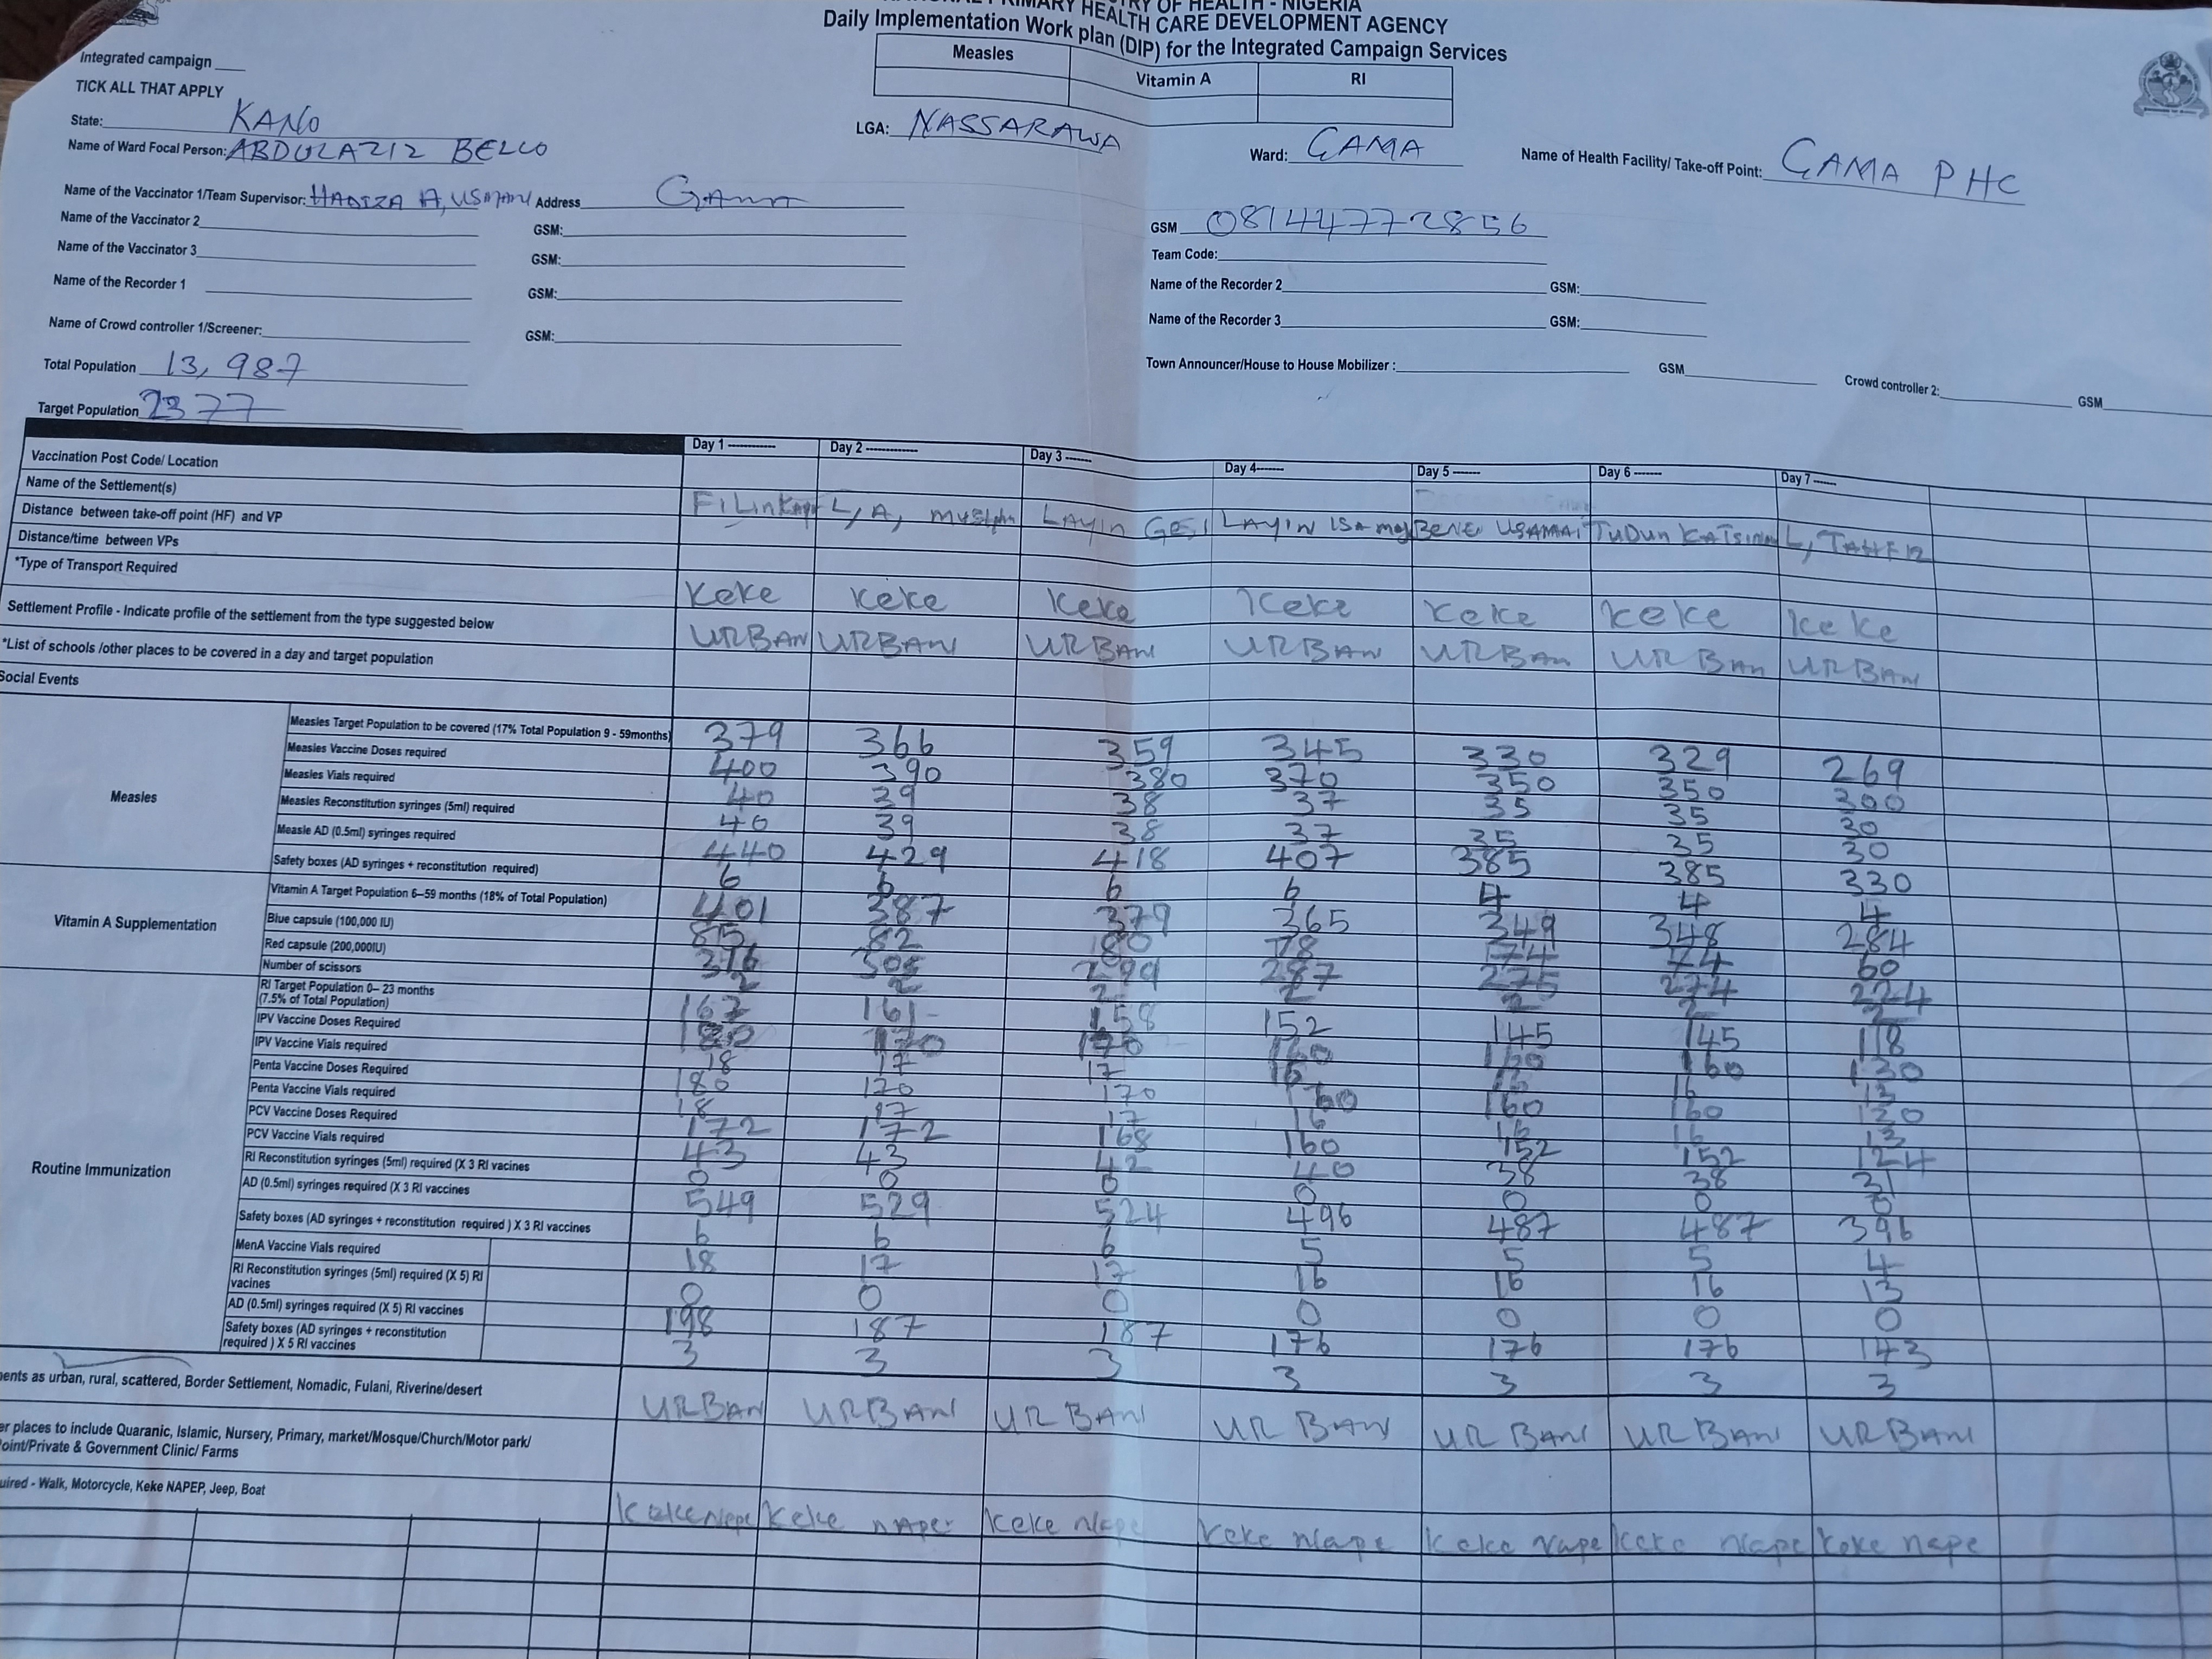 MINISTRY OF HEALTH - NIGERIA
PRIMARY HEALTH CARE DEVELOPMENT AGENCY
Daily Implementation Work plan (DIP) for the Integrated Campaign Services
Integrated campaign
TICK ALL THAT APPLY
Measles Vitamin A RI
State: KANO LGA: NASSARAWA Ward: GAMA Name of Health Facility/ Take-off Point: GAMA PHC
Name of Ward Focal Person: ABDULAZIZ BELLO
Name of the Vaccinator 1/Team Supervisor: HADIZA A, USMAN Address Gama GSM 08147728556
Name of the Vaccinator 2 GSM: Team Code:
Name of the Vaccinator 3 GSM: Name of the Recorder 2 GSM:
Name of the Recorder 1 GSM: Name of the Recorder 3 GSM:
Name of Crowd controller 1/Screener: GSM: Town Announcer/House to House Mobilizer : GSM Crowd controller 2: GSM
Total Population 13,987
Target Population 2377
Day 1 Day 2 Day 3 Day 4 Day 5 Day 6 Day 7
Vaccination Post Code/ Location
Name of the Settlement(s)
Distance between take-off point (HF) and VP
Distance/time between VPs
*Type of Transport Required Keke Keke Keke Keke Keke Keke Keke
Settlement Profile - Indicate profile of the settlement from the type suggested below URBAN URBAN URBAN URBAN URBAN URBAN URBAN
*List of schools /other places to be covered in a day and target population
Social Events
Measles
Measles Target Population to be covered (17% Total Population 9 - 59months) 379 366 359 345 330 329 269
Measles Vaccine Doses required 400 390 380 370 350 350 300
Measles Vials required 40 39 38 37 35 35 30
Measles Reconstitution syringes (5ml) required 40 39 38 37 35 35 30
Measle AD (0.5ml) syringes required 440 429 418 407 385 385 330
Safety boxes (AD syringes + reconstitution required) 6 6 6 6 4 4 4
Vitamin A Supplementation
Vitamin A Target Population 6–59 months (18% of Total Population) 401 387 379 365 349 348 284
Blue capsule (100,000 IU) 82 78 74 60
Red capsule (200,000IU) 299 287 275 274 224
Number of scissors 2 2 2 2 2 2 2
Routine Immunization
RI Target Population 0– 23 months (7.5% of Total Population) 161 158 152 145 145 118
IPV Vaccine Doses Required 180 170 170 160 160 160 130
IPV Vaccine Vials required 18 17 17 16 16 16 13
Penta Vaccine Doses Required 180 170 170 160 160 160 130
Penta Vaccine Vials required 18 17 17 16 16 16 13
PCV Vaccine Doses Required 172 172 168 160 152 152 124
PCV Vaccine Vials required 43 43 42 40 38 38 31
RI Reconstitution syringes (5ml) required (X 3 RI vacines 0 0 0 0 0 0 0
AD (0.5ml) syringes required (X 3 RI vaccines 549 529 524 496 487 487 396
Safety boxes (AD syringes + reconstitution required ) X 3 RI vaccines 6 6 6 5 5 5 4
MenA Vaccine Vials required 18 17 17 16 16 16 13
RI Reconstitution syringes (5ml) required (X 5) RI vacines 0 0 0 0 0 0 0
AD (0.5ml) syringes required (X 5) RI vaccines 198 187 187 176 176 176 143
Safety boxes (AD syringes + reconstitution required ) X 5 RI vaccines 3 3 3 3 3 3 3
ents as urban, rural, scattered, Border Settlement, Nomadic, Fulani, Riverine/desert URBAN URBAN URBAN URBAN URBAN URBAN URBAN
er places to include Quranic, Islamic, Nursery, Primary, market/Mosque/Church/Motor park/
oint/Private & Government Clinic/ Farms
uired - Walk, Motorcycle, Keke NAPEP, Jeep, Boat